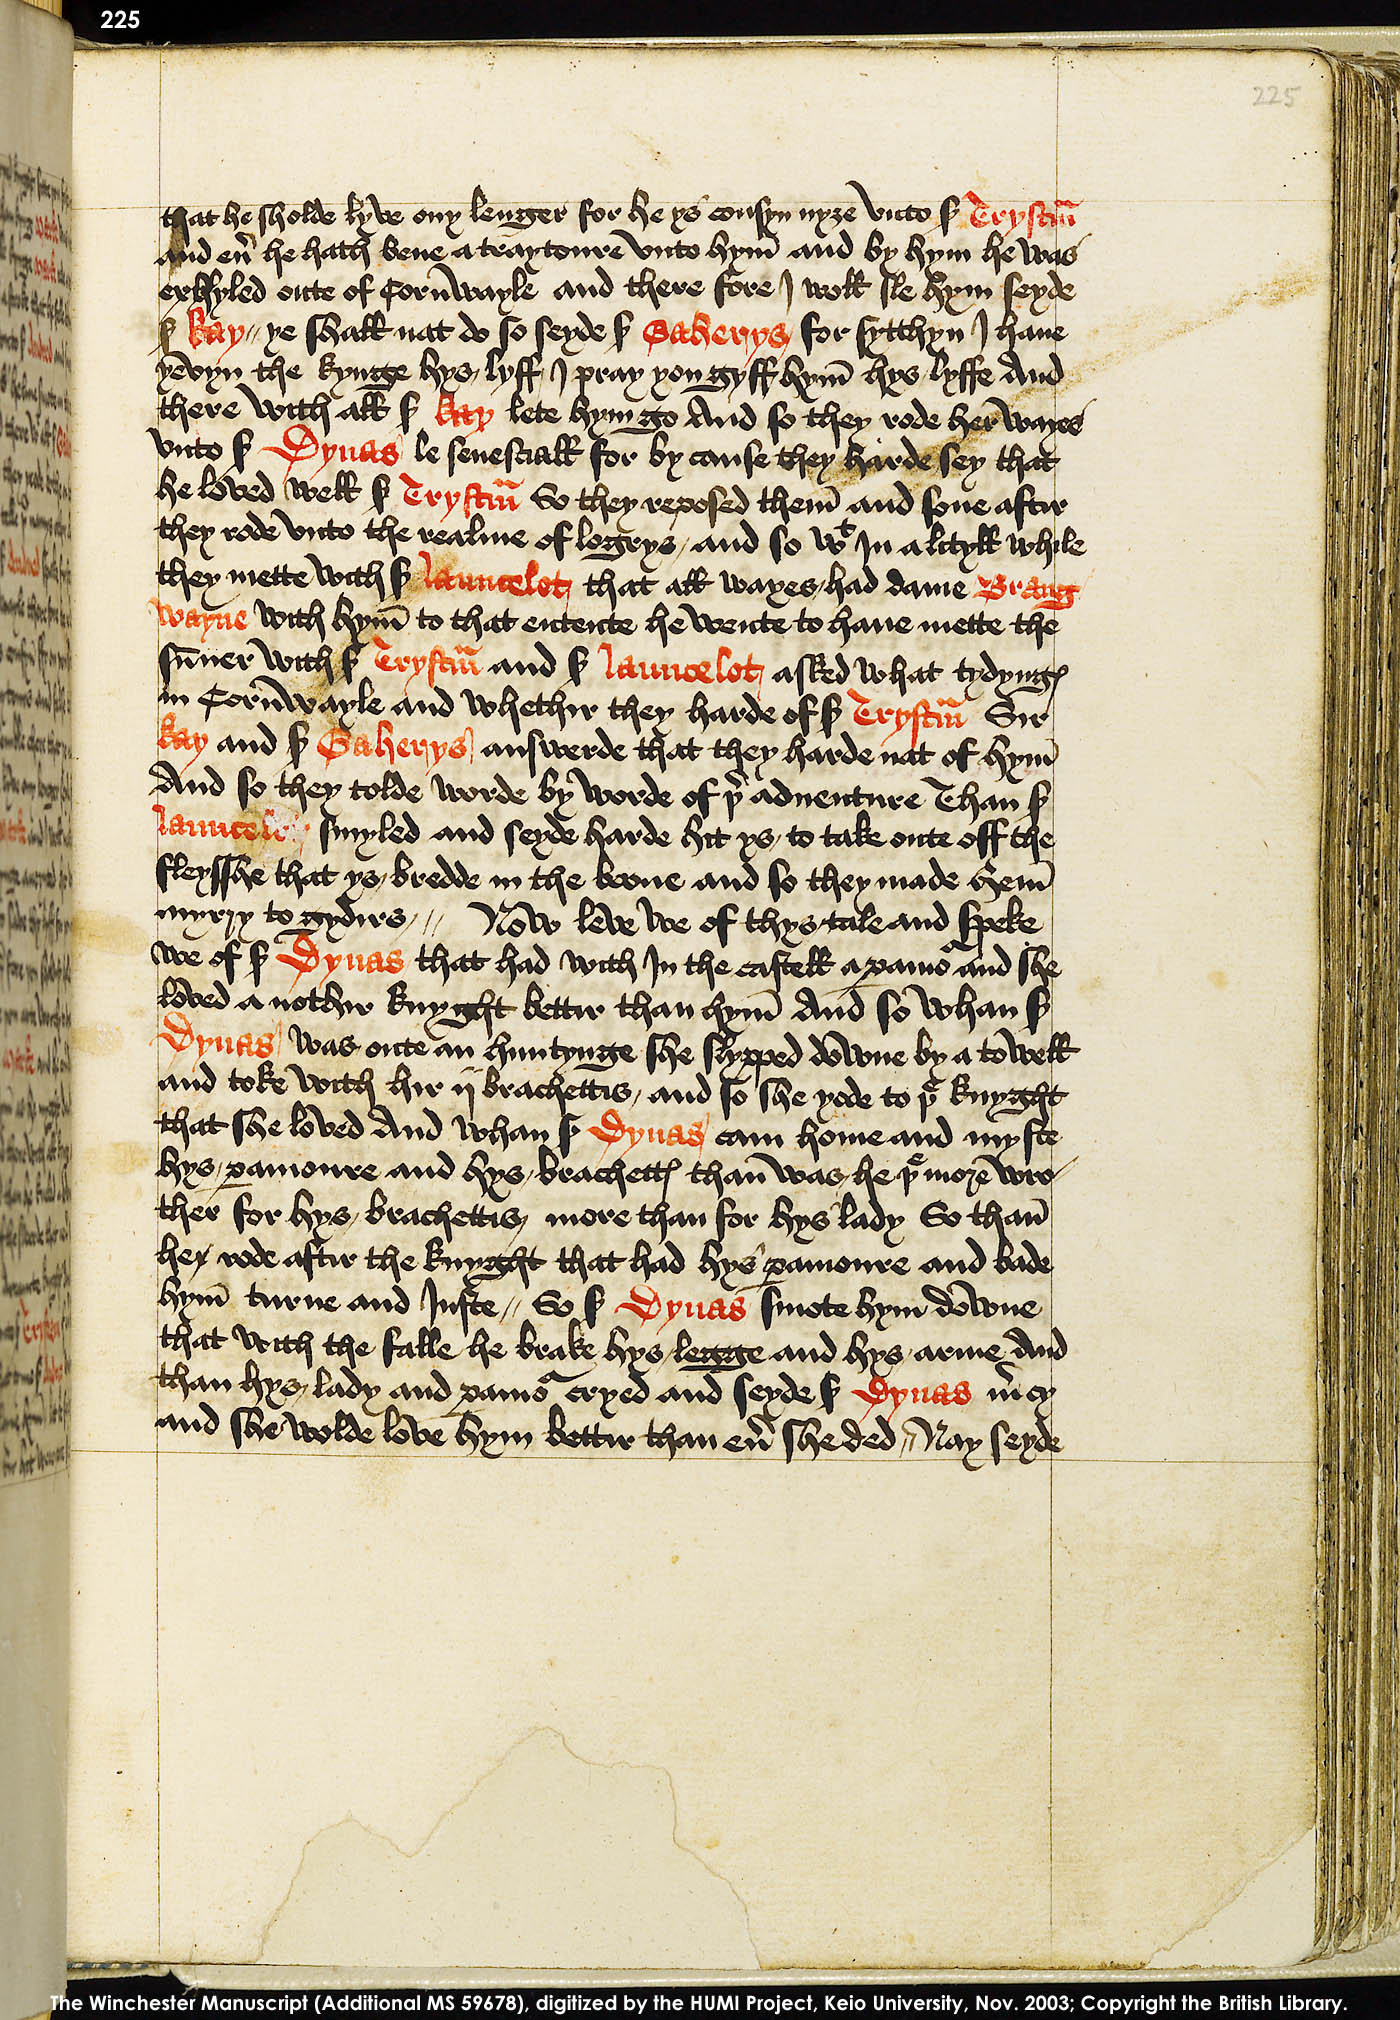 225
225
that he sholde lyve ony lenger for he ys cousyn nyze vnto sʳ Trystrm̄
and eu̾ he hath bene a traytoure vnto hym̄ and by hym he was
exkyled oute of Corn̄wayle and there fore I woll sle hym seyde
sʳ kay // ye shall nat do so seyde sʳ Gaherys for sytthyn I haue
yevyn the kynge hys lyff I pray you gyff hym̄ hys lyffe And
there with all sʳ kay lete hym go And so they rode her wayes
vnto sʳ Dynas le senesciall for by cause they harde sey that
he loved well sʳ Trystrm̄ So they reposed them̄ and sone aftir
they rode vnto the realme of logrys / and so wᵗ In a lityll while
they mette with sʳ launcelot that all wayes had dame Brang
wayne with hym̄ to that entente he wente to haue mette the
sūner with sʳ Trystrm̄ and sʳ launcelot asked what tydyngꝭ
in Corn̄wayle and whethir they harde of sʳ Trystrm̄ Sir
kay and sʳ Gaherys answerde that they harde nat of hym̄
And so they tolde worde by worde of þͬ aduenture Than sʳ
launcelot smyled and seyde harde hit ys to take oute off the
fleysshe that ys bredde in the boone and so they made hem̄
myrry to gydirs // Now leve we of thys tale and speke
we of sʳ Dynas that had with In the castell a pamoͬ and she
loved a nothir knyght bettir than hym̄ And so whan sʳ
Dynas was oute an huntynge she slypped downe by a towell
and toke with hir ij brachettis / and so she yode to þͤ knyght
that she loved And whan sʳ Dynas cam home and myste
hys pamoure and hys brachettꝭ than̄ was he þͤ more wro
ther for hys brachettis more than for hys lady So than̄
he rode aftir the knyght that had hys pamoure and bade
hym̄ turne and Juste // So sʳ Dynas smote hym downe
that with the falle he brake hys legge and hys arme And
than hys lady and pamoͬ cryed and seyde sʳ Dynas m̾cy
and she wolde love hym bettir than eu̾ she ded // Nay seyde
The Winchester Manuscript (Additional MS 59678), digitized by the HUMI Project, Keio University, Nov. 2003; Copyright the British Library.